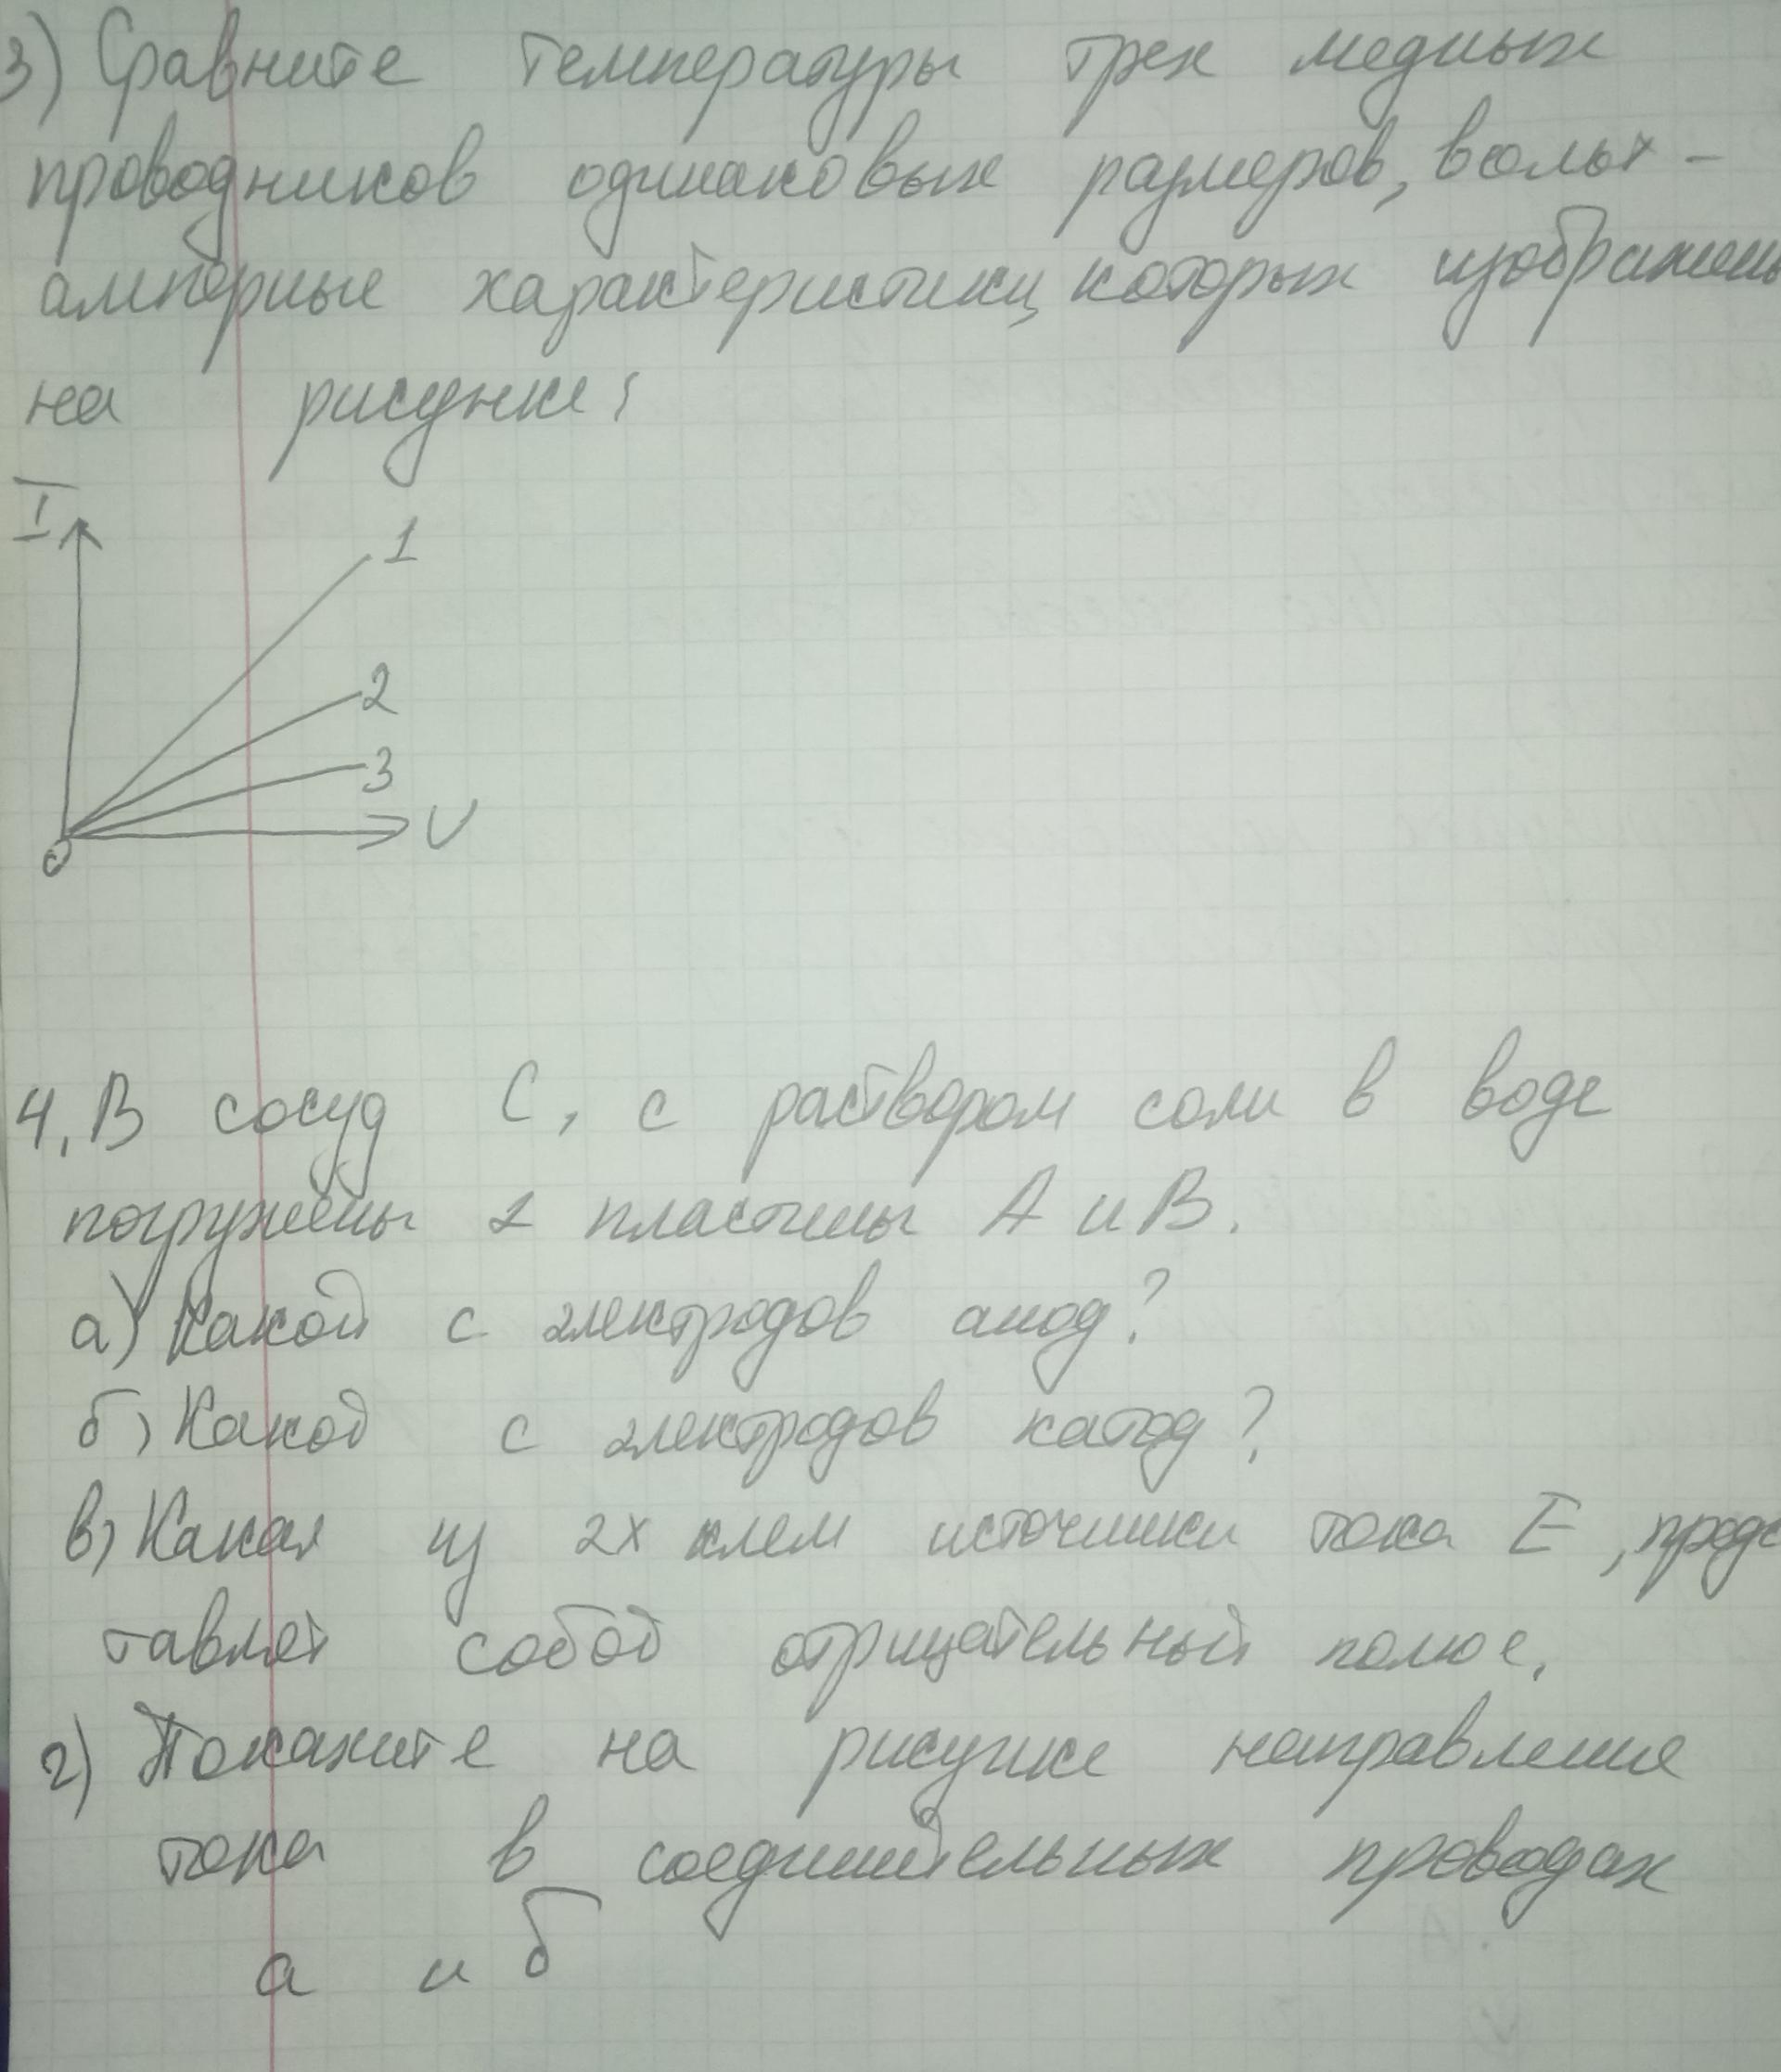 3) Сравните температуры трех медных
проводников одинаковых размеров, вольт-
амперные характеристики, которых изображены
на рисунке:
I
1
2
3
U
0
4. В сосуд С, с раствором соли в воде
погружены 2 пластины А и В.
а) Какой с электродов анод?
б) Какой с электродов катод?
в) Какая из 2х клем источники тока Е, предс
тавлет собой отрицательный полюс.
г) Покажите на рисунке направление
тока в соединительных проводах
а и б